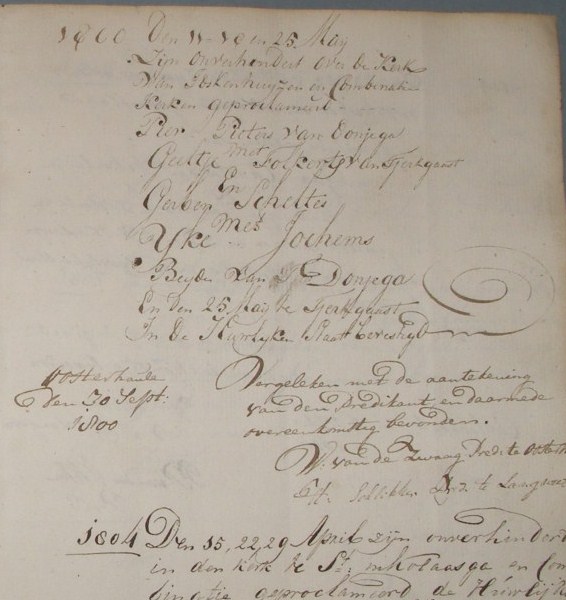 1800 Den 11 - 18 en 25 May
Zijn onverhindert over de Kerk
van Idskenhuyzen en Combinatie
Kerken geproclameert
Pier Pieters van Donjega
met
Geeltje Folkerts van Tjerkgaast
En
Gerben Scheltes
Met
Yke Jochems
Beyden van St Donjega
En den 25 May te Tjerkgaast
In de Huwlyken Staat bevestigd
Oosterhaule
Den 30 Sept:
1800
Vergeleken met de aantekening
van den Predikant en daarmede
overeenkomstig bevonden.
W. van de Zwaag Pred: te Oosterh
Pred: te
1804 Den 15, 22, 29 April zijn onverhinderd
in den kerk te St: Nikolaasga en Com
binatie geproclameerd de Huwlijk